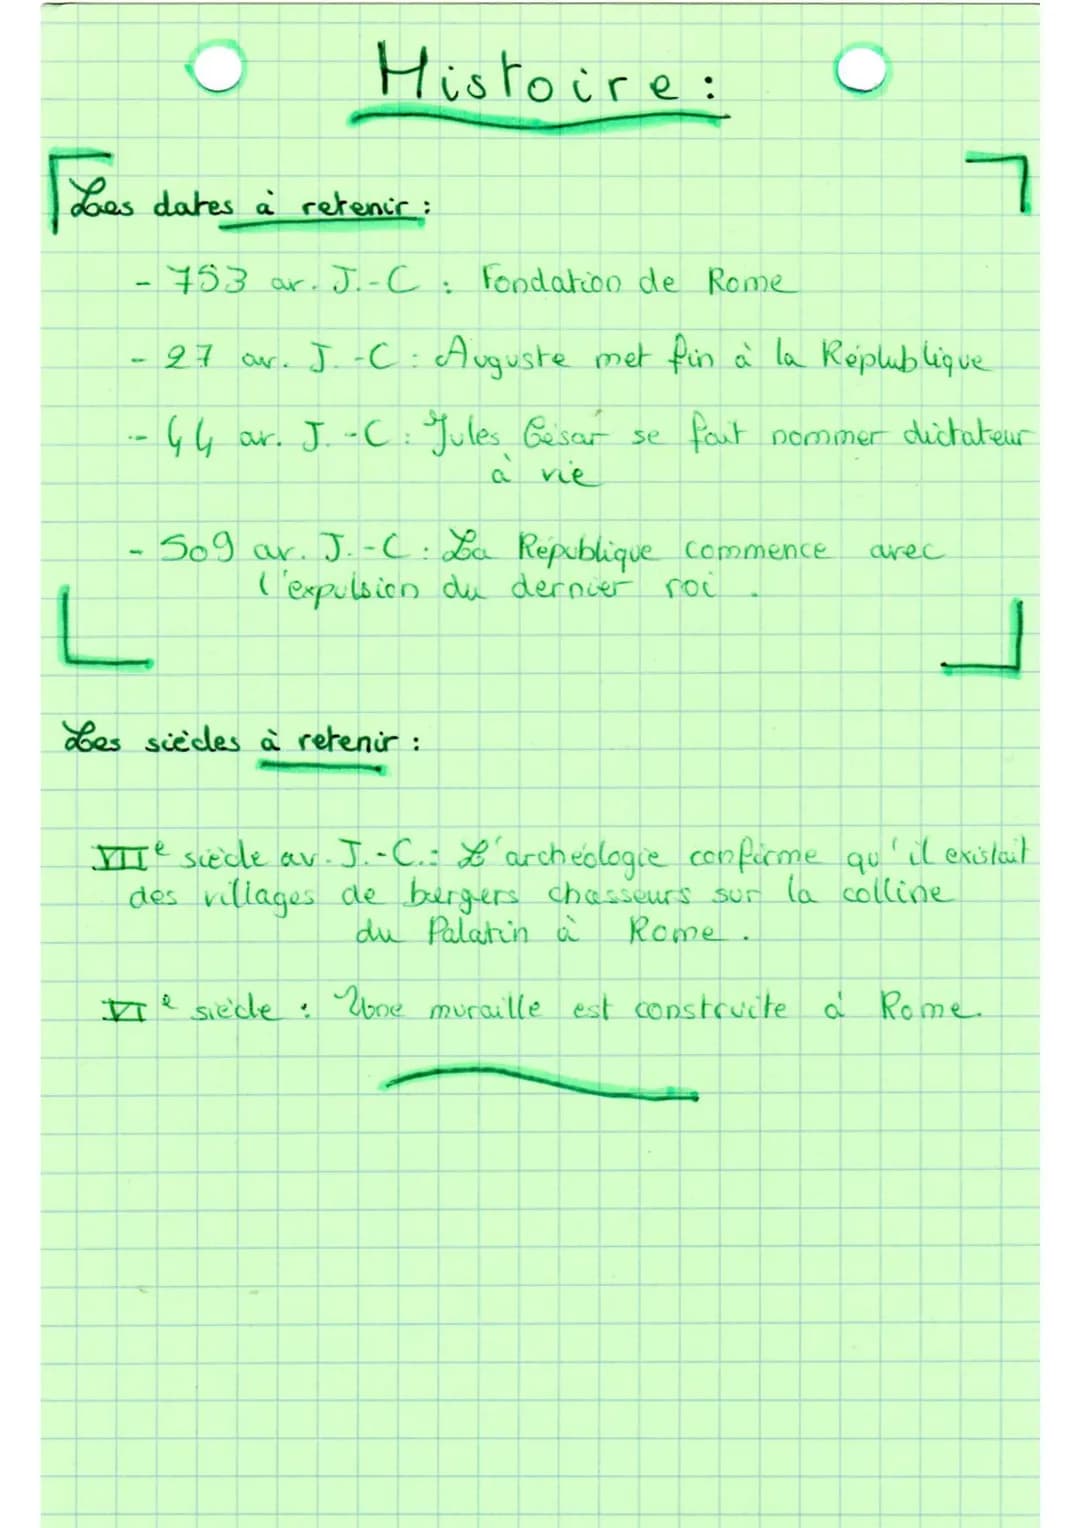 Histoire :
Les dates à retenir :
- 753 av. J.-C : Fondation de Rome
- 27 av. J.-C : Auguste met fin à la Réplublique
- 44 av. J.-C : Jules César se fait nommer dictateur
à vie
- 509 av. J.-C : La République commence avec
l'expulsion du dernier roi.
Les siècles à retenir :
VIIe siècle av. J.-C. : L'archéologie confirme qu'il existait
des villages de bergers chasseurs sur la colline
du Palatin à Rome.
VIe siècle : Une muraille est construite à Rome.